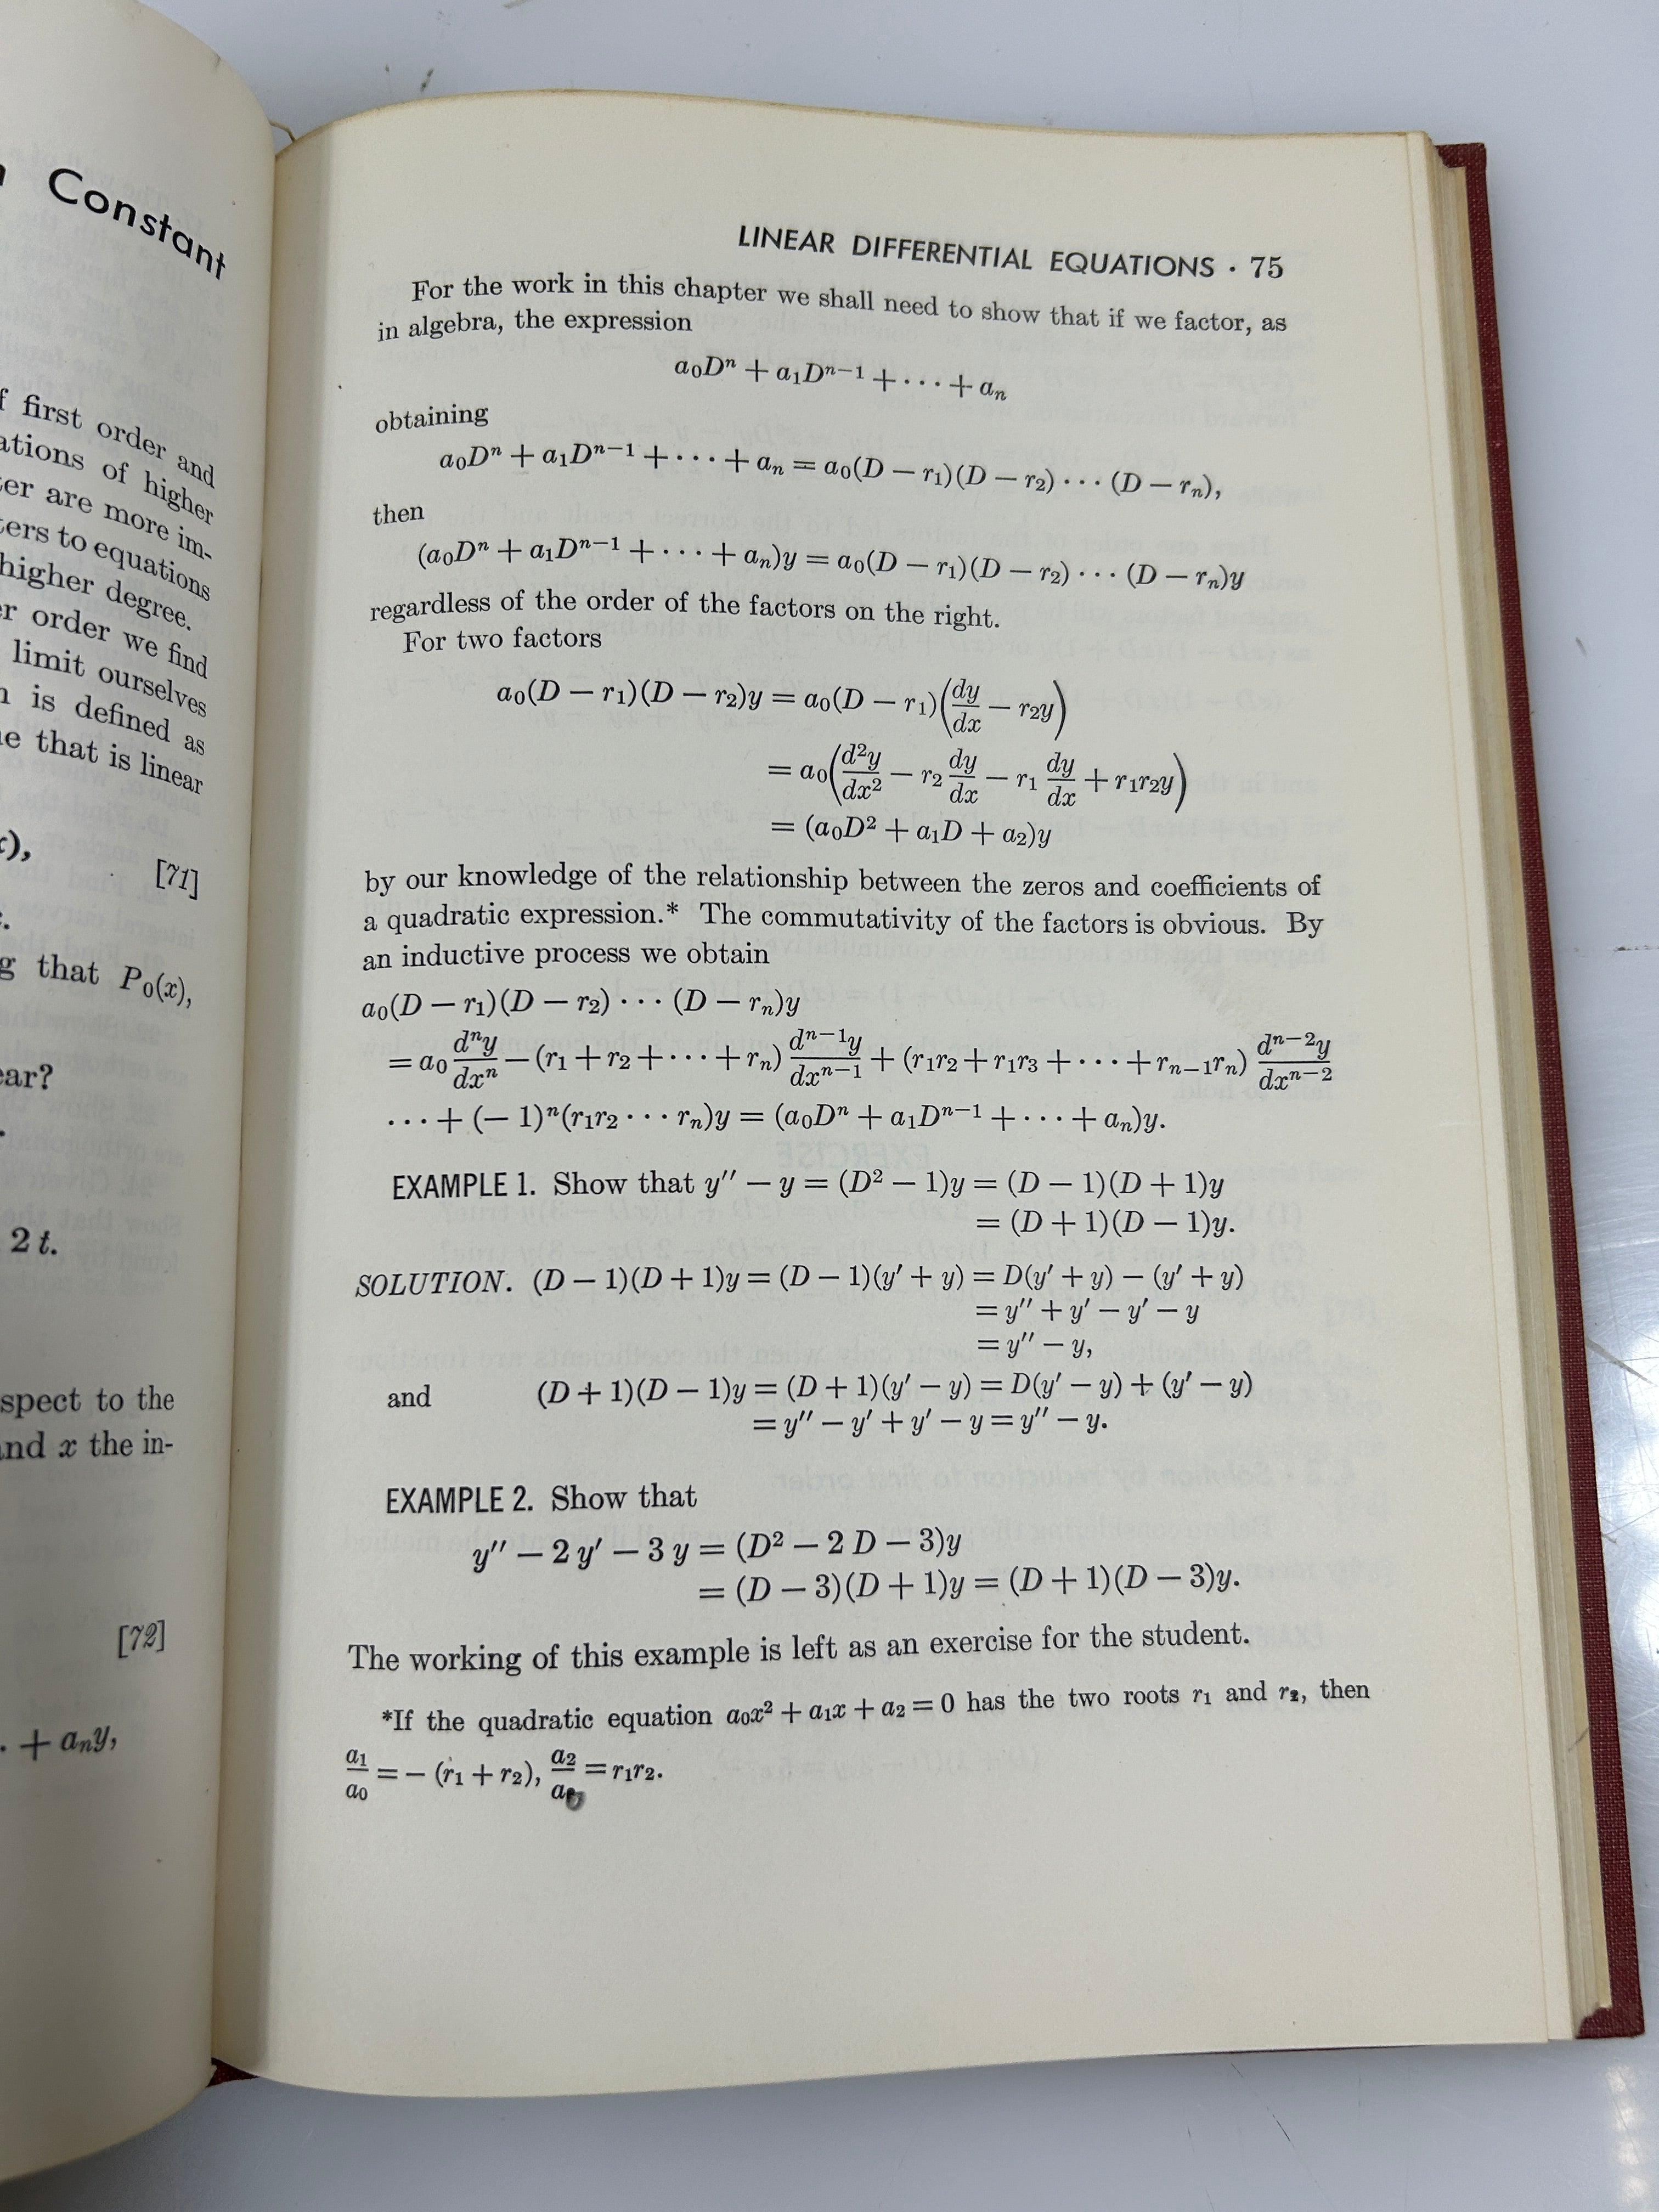 Constant
f first order and
ations of higher
ter are more im-
ters to equations
higher degree.
er order we find
limit ourselves
n is defined as
ne that is linear
[71]
g that P₀(x),
ear?
2 t.
spect to the
and x the in-
[72]
. + aₙy,
LINEAR DIFFERENTIAL EQUATIONS · 75
For the work in this chapter we shall need to show that if we factor, as
in algebra, the expression
a₀Dⁿ + a₁Dⁿ⁻¹ + · · · + aₙ
obtaining
a₀Dⁿ + a₁Dⁿ⁻¹ + · · · + aₙ = a₀(D − r₁)(D − r₂) · · · (D − rₙ),
then
(a₀Dⁿ + a₁Dⁿ⁻¹ + · · · + aₙ)y = a₀(D − r₁)(D − r₂) · · · (D − rₙ)y
regardless of the order of the factors on the right.
For two factors
a₀(D − r₁)(D − r₂)y = a₀(D − r₁)(dy/dx − r₂y)
= a₀(d²y/dx² − r₂ dy/dx − r₁ dy/dx + r₁r₂y)
= (a₀D² + a₁D + a₂)y
by our knowledge of the relationship between the zeros and coefficients of
a quadratic expression.* The commutativity of the factors is obvious. By
an inductive process we obtain
a₀(D − r₁)(D − r₂) · · · (D − rₙ)y
= a₀ dⁿy/dxⁿ − (r₁ + r₂ + · · · + rₙ) dⁿ⁻¹y/dxⁿ⁻¹ + (r₁r₂ + r₁r₃ + · · · + rₙ₋₁rₙ) dⁿ⁻²y/dxⁿ⁻²
· · · + (− 1)ⁿ(r₁r₂ · · · rₙ)y = (a₀Dⁿ + a₁Dⁿ⁻¹ + · · · + aₙ)y.
EXAMPLE 1. Show that y″ − y = (D² − 1)y = (D − 1)(D + 1)y
= (D + 1)(D − 1)y.
SOLUTION. (D − 1)(D + 1)y = (D − 1)(y′ + y) = D(y′ + y) − (y′ + y)
= y″ + y′ − y′ − y
= y″ − y,
and (D + 1)(D − 1)y = (D + 1)(y′ − y) = D(y′ − y) + (y′ − y)
= y″ − y′ + y′ − y = y″ − y.
EXAMPLE 2. Show that
y″ − 2 y′ − 3 y = (D² − 2 D − 3)y
= (D − 3)(D + 1)y = (D + 1)(D − 3)y.
The working of this example is left as an exercise for the student.
*If the quadratic equation a₀x² + a₁x + a₂ = 0 has the two roots r₁ and r₂, then
a₁/a₀ = − (r₁ + r₂), a₂/a₀ = r₁r₂.